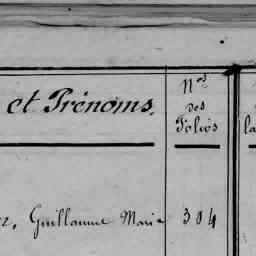 et Prénoms.
Nos
des
Folios
la
Guillaume Marie 304